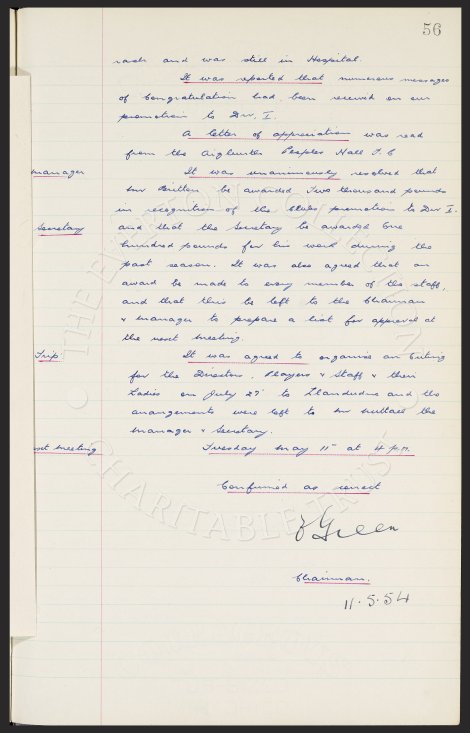 56
rash and was still in Hospital.
It was reported that numerous messages
of Congratulation had been received on our
promotion to Div. I.
A letter of appreciation was read
from the Peoples Hall F.C
manager
It was unanimously resolved that
Mr Britton be awarded Two thousand pounds
in recognition of the Clubs promotion to Div I.
Secretary
and that the Secretary be awarded One
hundred pounds for his work during the
past season. It was also agreed that an
award be made to every member of the staff,
and that this be left to the Chairman
& manager to prepare a list for approval at
the next meeting.
Trip
It was agreed to organise an Outing
for the Directors, Players & Staff & their
Ladies on July 27' to Llandudno and the
arrangements were left to Mr Nuttall the
manager & Secretary.
next meeting
Tuesday May 11th at 4 p.m.
Confirmed as correct
Green
Chairman.
11.5.54
THE EVERTON COLLECTION
CHARITABLE TRUST
©